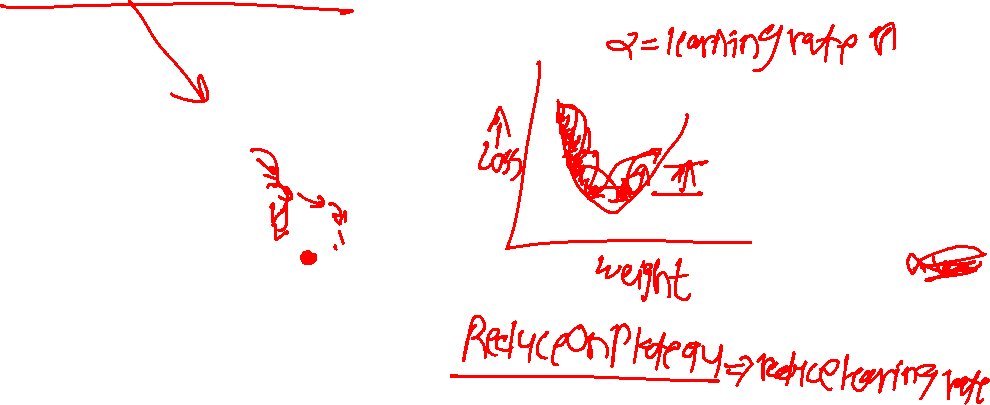 α = learning rate η
Loss
weight
ReduceOnPlateau => reduce learning rate